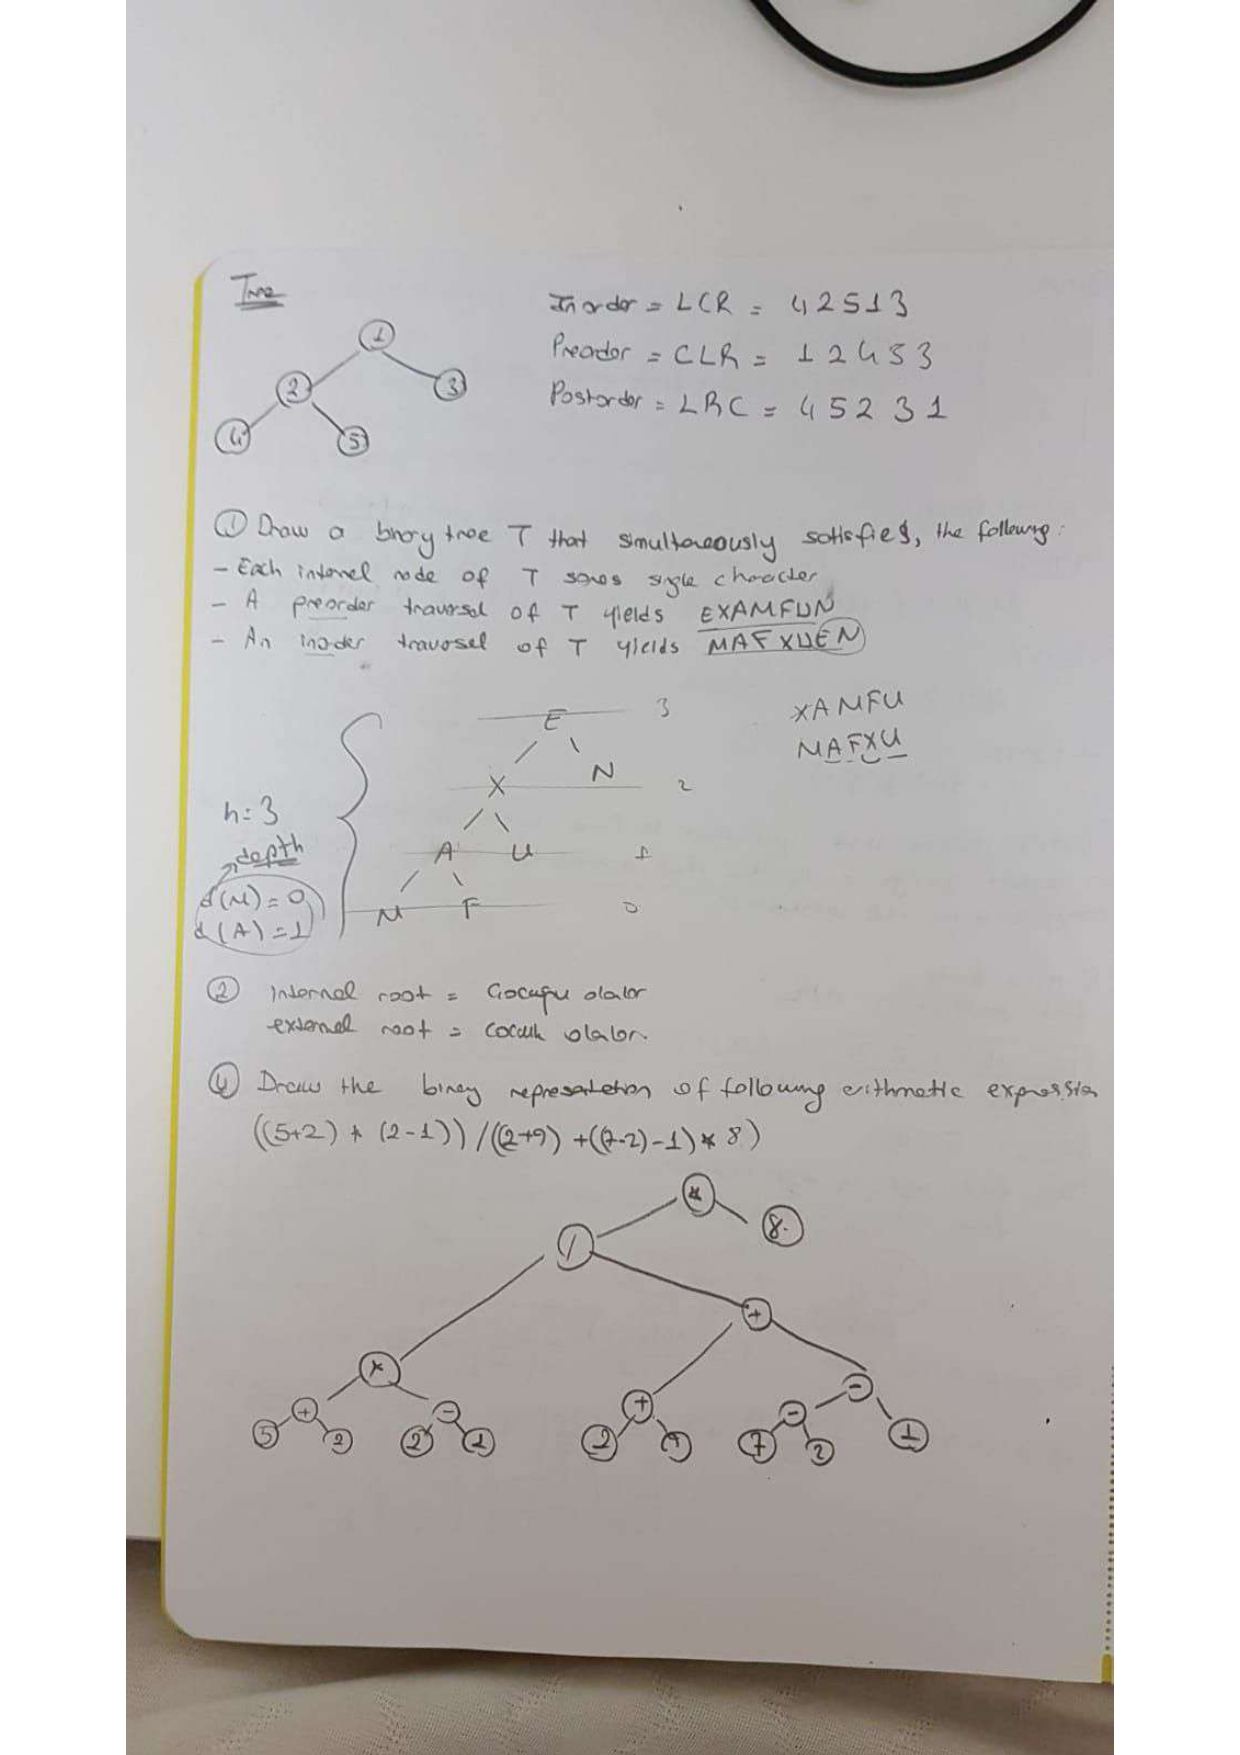 Tree
Inorder = LCR = 42513
Preorder = CLR = 12453
Postorder = LRC = 45231
1
2
3
4
5
① Draw a binary tree T that simultaneously satisfies, the following:
- Each internal node of T single character
- A preorder traversal of T yields EXAMFUN
- An inorder traversal of T yields MAFXUEN
E 3
X N 2
A U 1
M F 0
XAMFU
MAFXU
h=3
depth
d(M)=0
d(A)=1
② Internal root = Çocuğu olalor
external root = cocuk olalor.
④ Draw the binary represatetion of following arithmetic expression
((5+2) * (2-1)) / ((2+9) + ((7-2)-1) * 8)
*
/ 8
+
* -
+ - + -
5 2 2 1 2 9 7 2 1